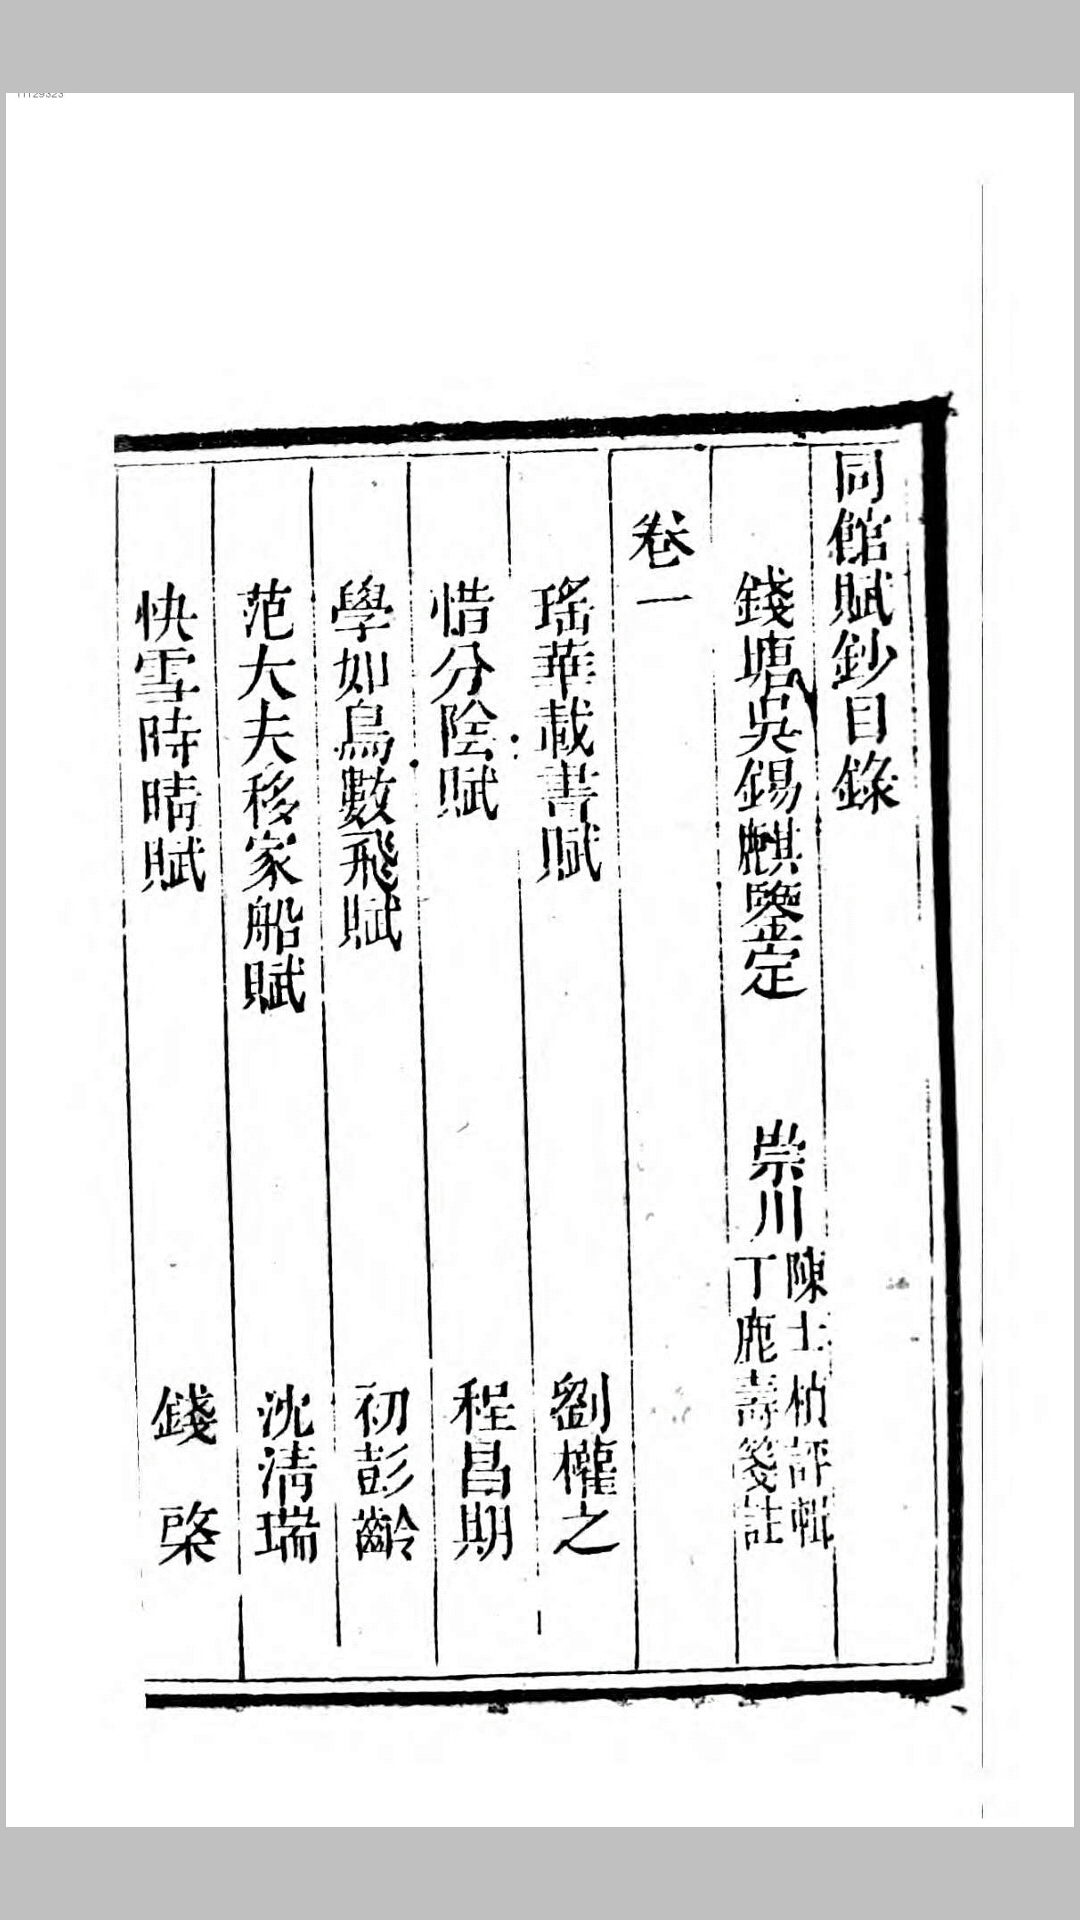 同館賦鈔目錄
錢塘吳錫麒鑒定 崇川 陳士楨評輯
丁鹿壽箋註
卷一
瑤華載書賦 劉權之
惜分陰賦 程昌期
學如鳥數飛賦 初彭齡
范大夫移家船賦 沈清瑞
快雪時晴賦 錢棨